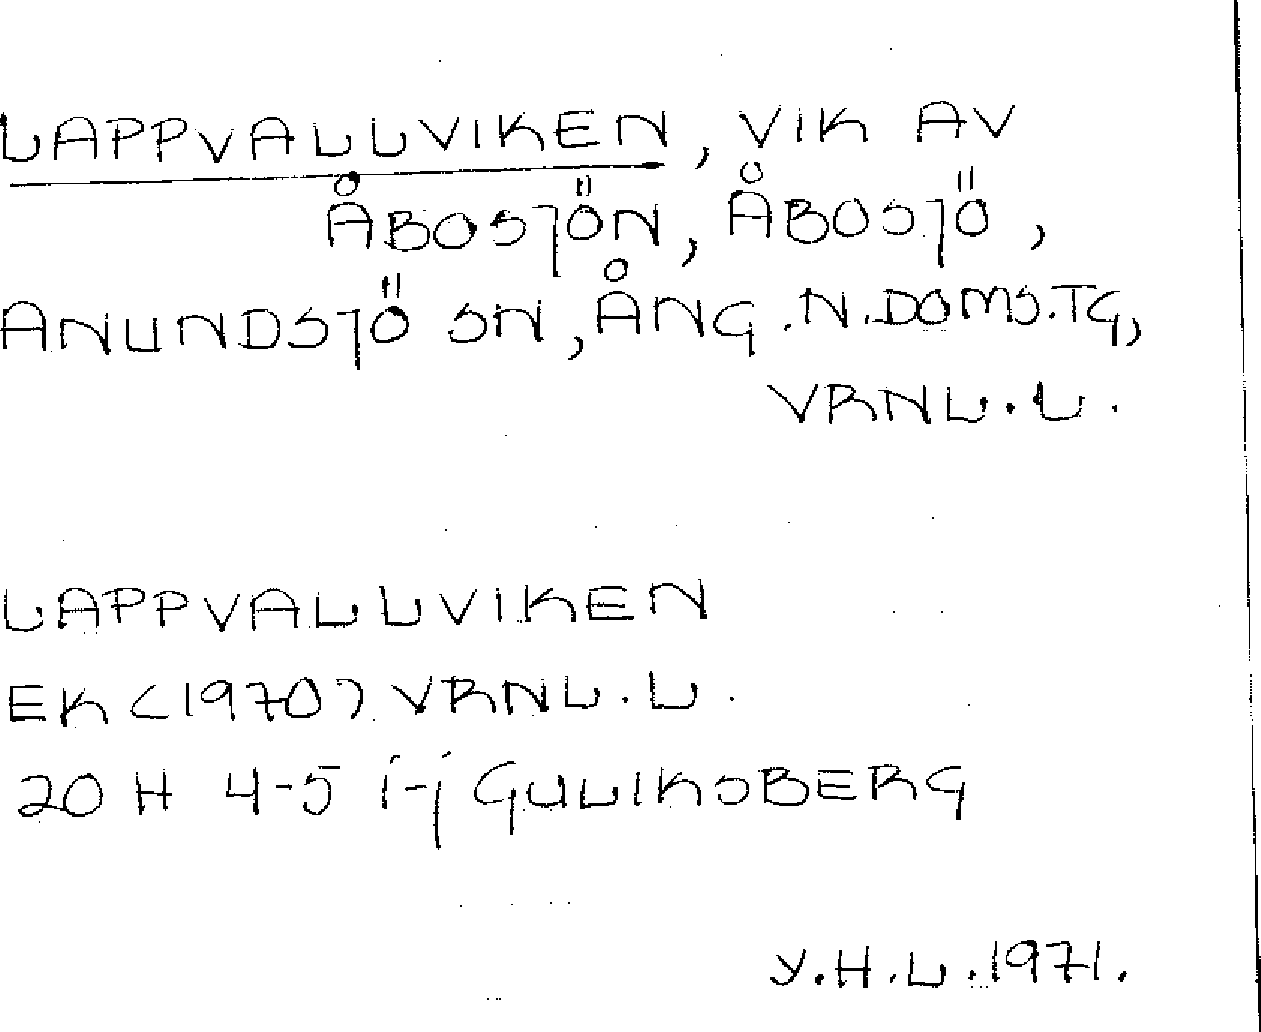 LAPPVALLVIKEN, VIK AV
ÅBOSJÖN, ÅBOSJÖ,
ANUNDSJÖ SN, ÅNG.N.DOMS.TG,
VRNL.L.
LAPPVALLVIKEN
EK (1970) VRNL.L.
20 H 4-5 i-j GULIKSBERG
Y.H.L.1971.